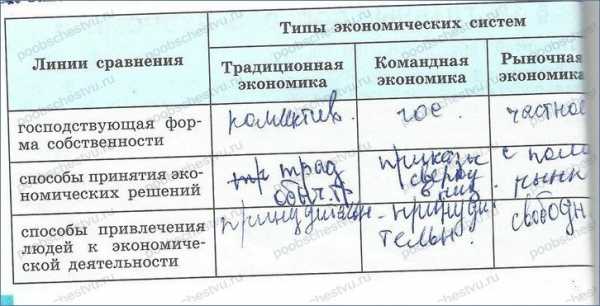 Типы экономических систем
Линии сравнения
Традиционная экономика
Командная экономика
Рыночная экономика
господствующая фор-
ма собственности
коллектив.
гос.
частное
способы принятия эко-
номических решений
трад
обыч.
приказы
сверху
вниз
с пом
рынк
способы привлечения
людей к экономиче-
ской деятельности
принудительн
принуди
тельн.
свободн
poobschestvu.ru